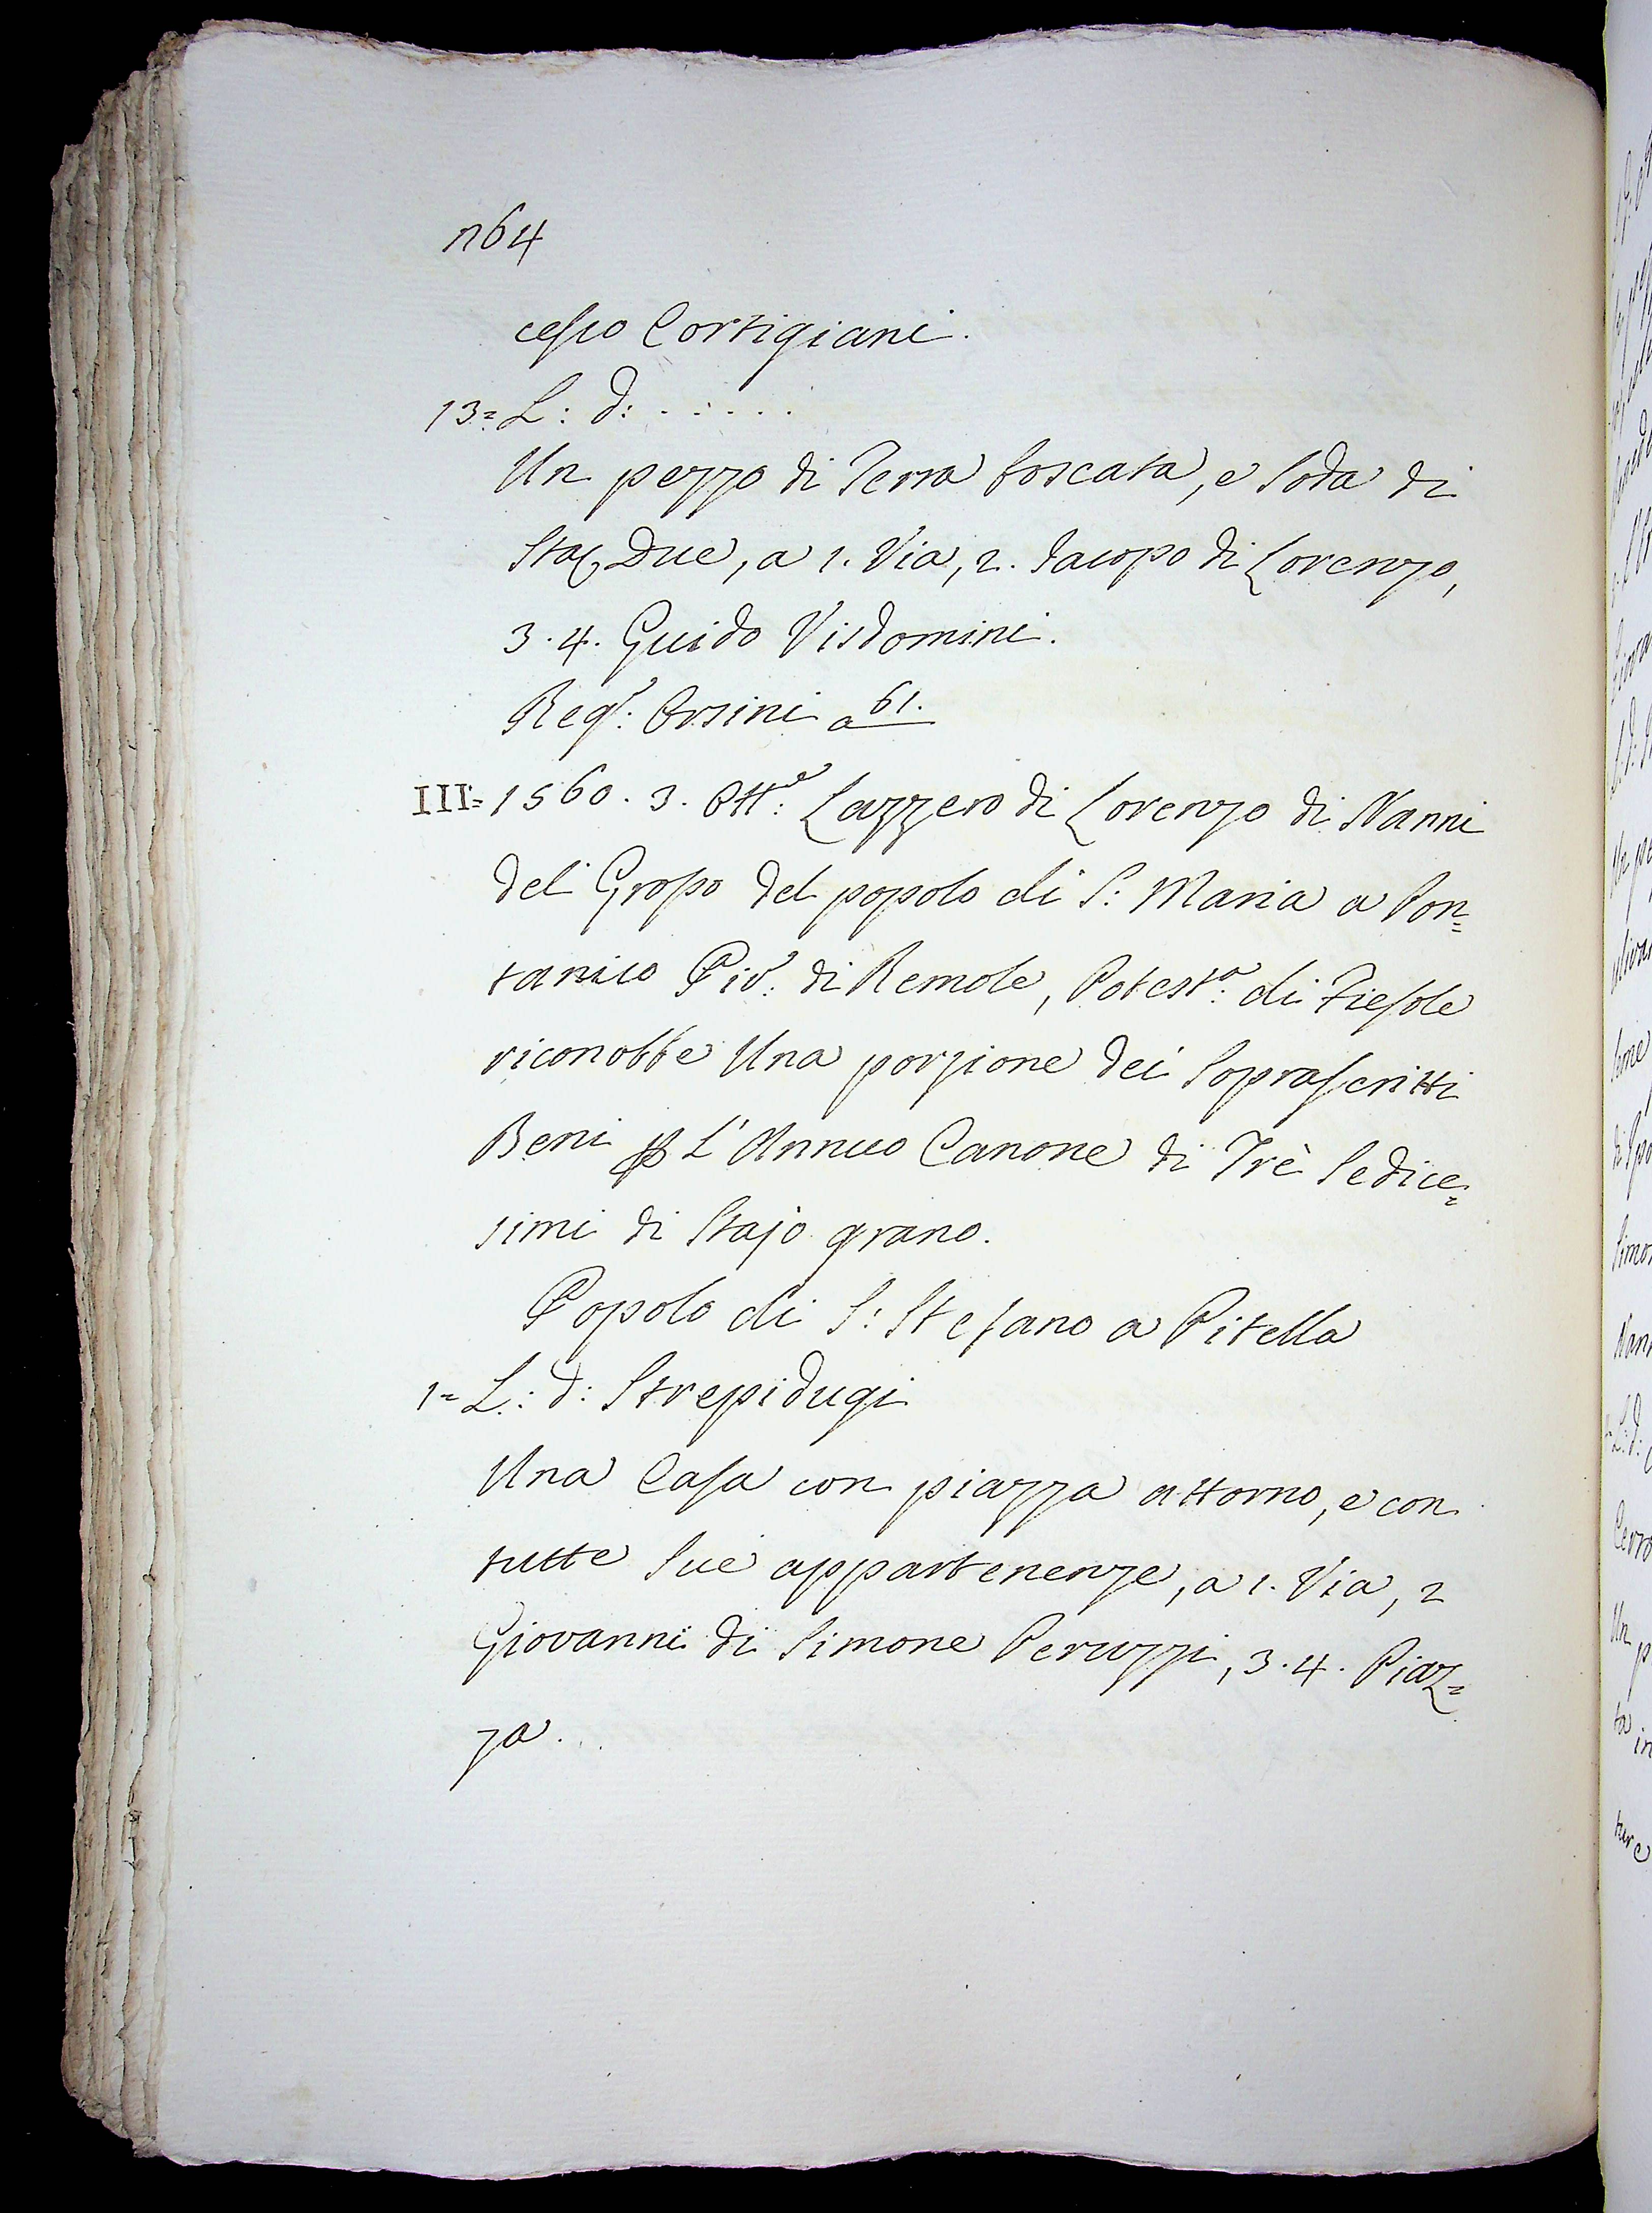 n64
cesco Cortigiani.
13= L: d: . . . . . .
Un pezzo di Terra boscata, e Soda di
Sta; Due, a 1. Via, 2. Iacopo di Lorenzo,
3. 4. Guido Visdomini.
Reg.o: Orsini a 61.
III= 1560. 3. Ott.e: Lazzero di Lorenzo di Nanni
del Grosso del popolo di S: Maria a Pon=
tanico Piv.e: di Remole, Potest.a: di Fiesole
riconobbe Una porzione dei Soprascritti
Beni p L'Annuo Canone di Trè Sedice=
simi di Stajo grano.
Popolo di S: Stefano a Pitella
1= L: d: Strepidugi
Una Casa con piazza attorno, e con
tutte Sue appartenenze, a 1. Via, 2
Giovanni di Simone Peruzzi, 3. 4. Piaz=
za.